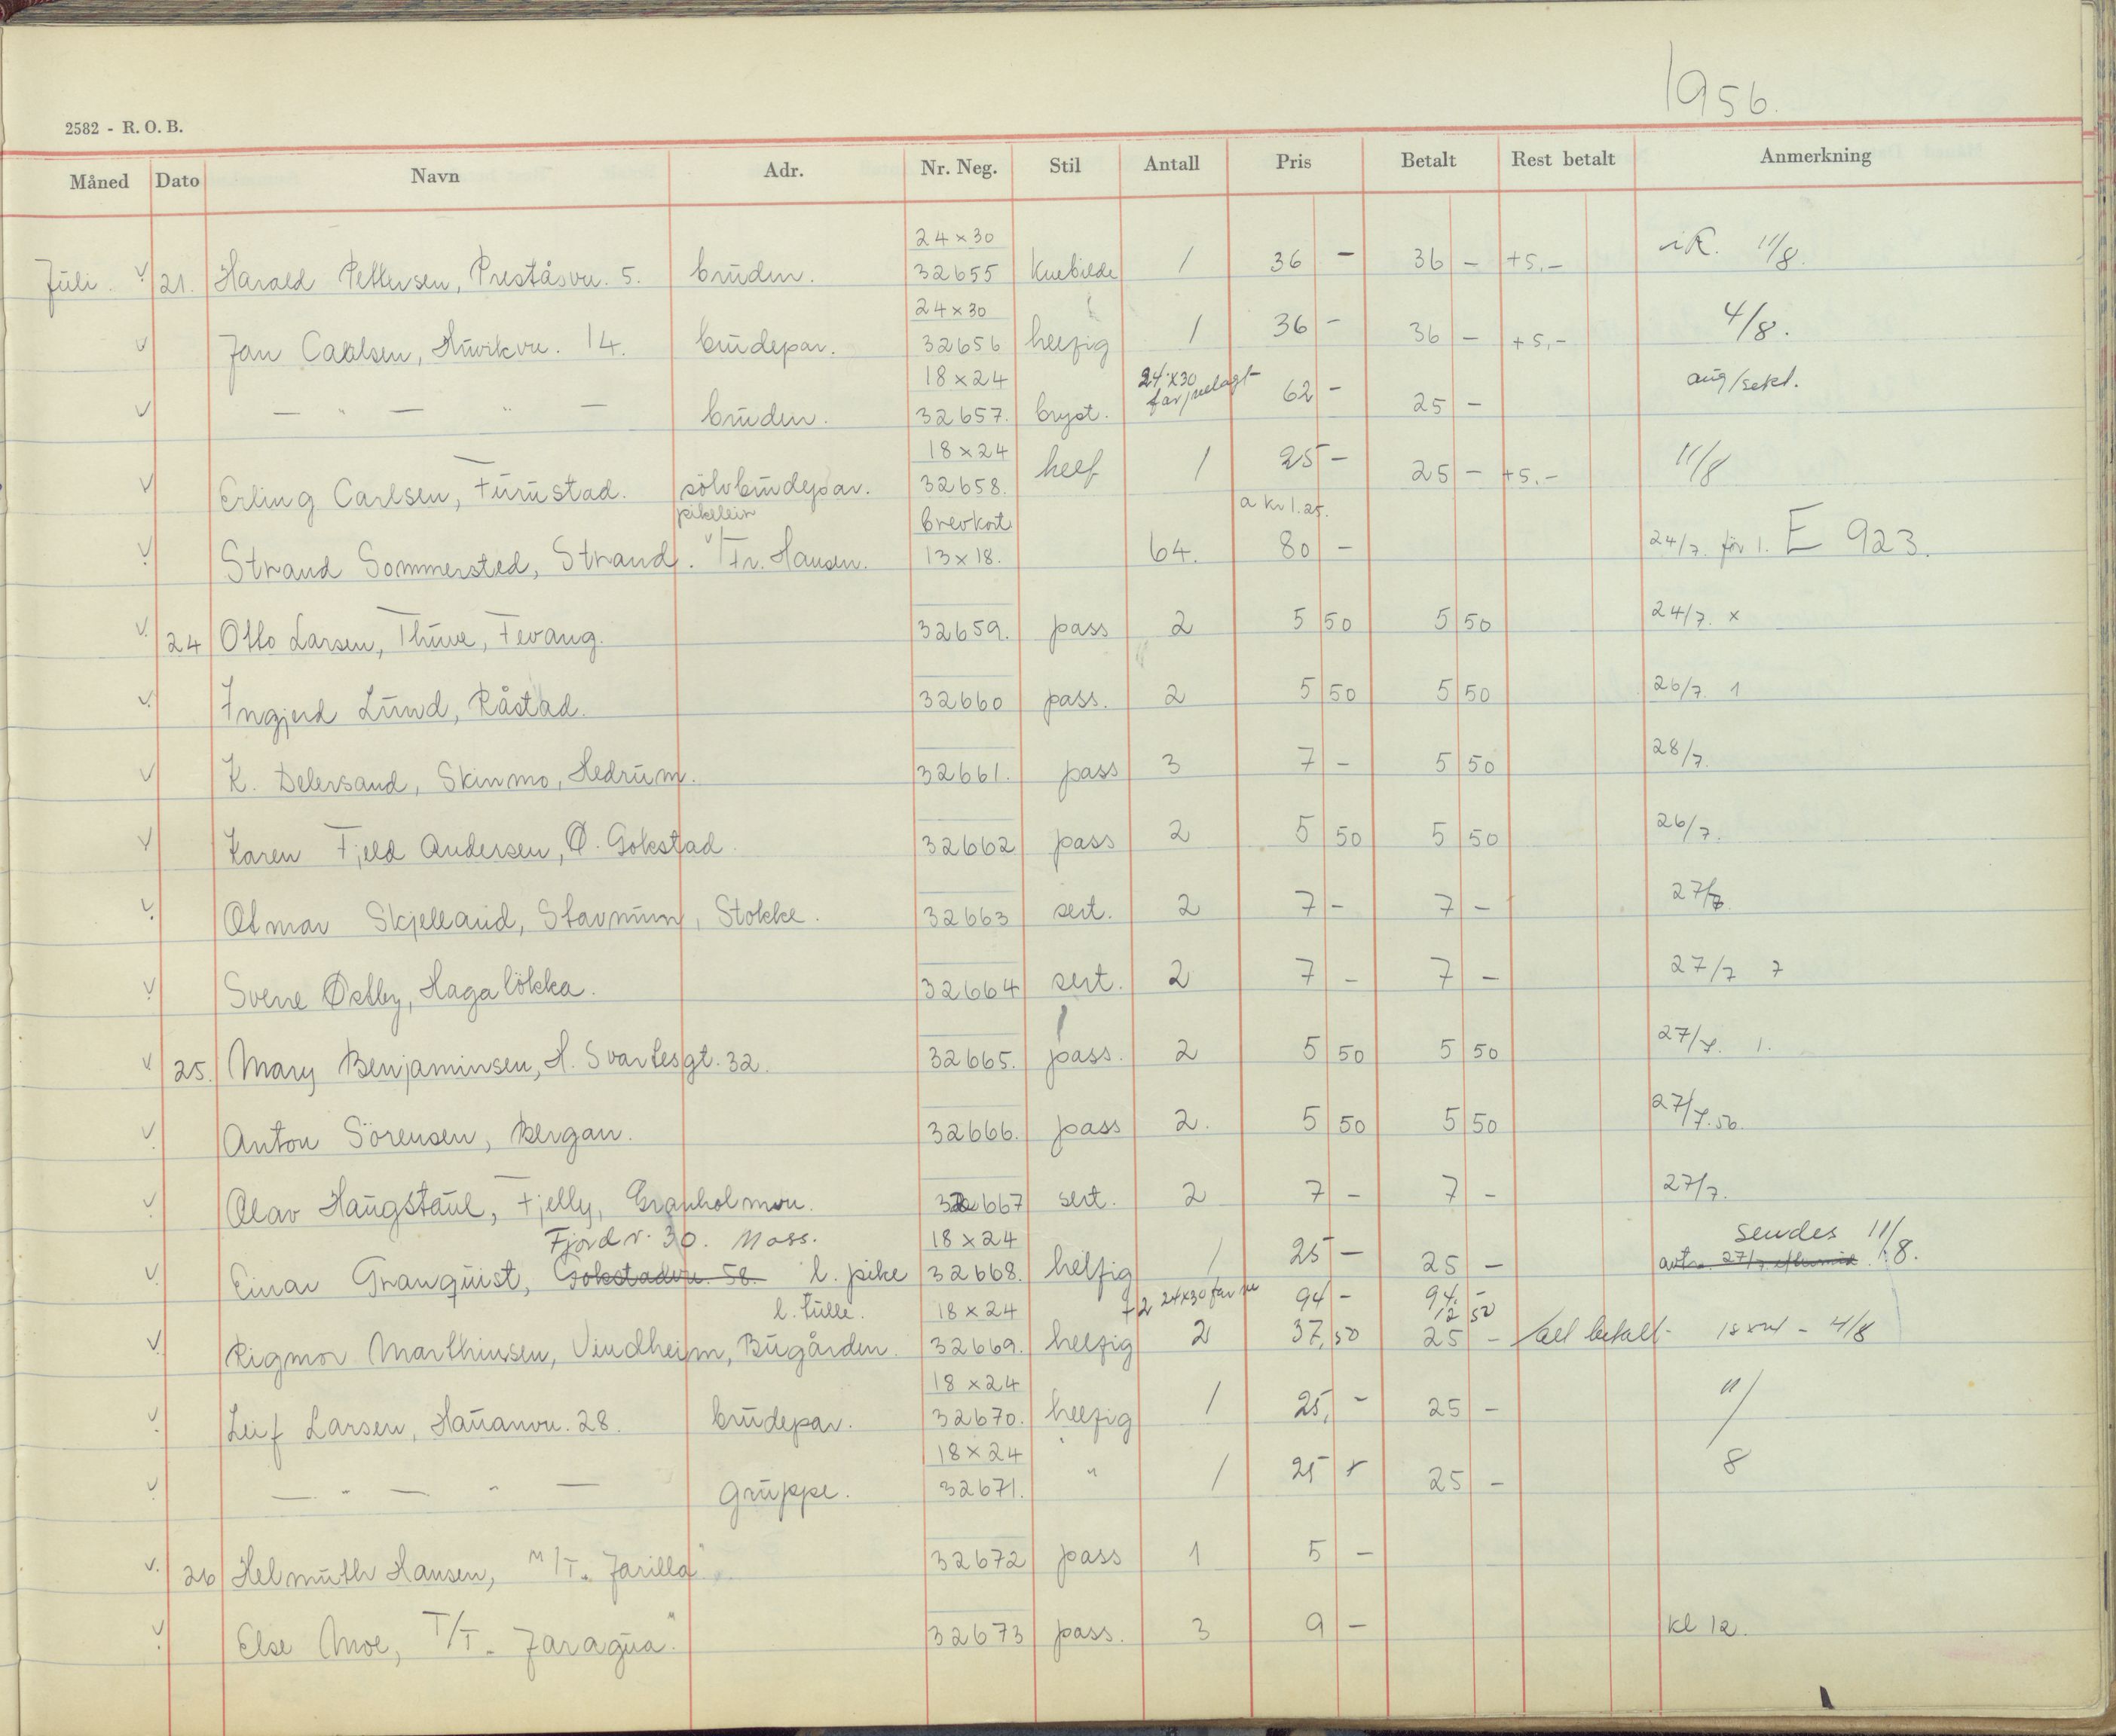 1956.
2582 - R. O. B.
Måned Dato Navn Adr. Nr. Neg. Stil Antall Pris Betalt Rest betalt Anmerkning
24 x 30
Juli. v 21. Harald Pettersen, Preståsvn. 5. bruden. 32655 Knebilde 1 36 - 36 - +5,- 11/8.
24 x 30
v Jan Caalsen, Huvikvn. 14. brudepar. 32656 helfig 1 36 - 36 - +5,- 4/8.
18 x 24 24 x 30
v — " — " — bruden. 32657. bryst. farvelagt 62 - 25 - aug/sekt.
18 x 24
v Erling Carlsen, Furustad. sölvbrudepar. 32658. helf 1 25 - 25 - +5,- 11/8
brevkort a kr 1.25.
v Strand Sommersted, Strand. v/Fr. Hansen. 13 x 18. 64. 80 - 24/7. för 1. E 923.
v 24 Otto Larsen, Thuve, Fevang. 32659. pass 2 5 50 5 50 24/7. x
v Ingjerd Lund, Råstad. 32660 pass. 2 5 50 5 50 26/7. 1
v K. Delersand, Skinmo, Hedrum. 32661. pass 3 7 - 5 50 28/7.
v Karen Fjeld Andersen, Ø. Gokstad. 32662 pass 2 5 50 5 50 26/7.
v Otmar Skjelland, Stavnum, Stokke. 32663 sert. 2 7 - 7 - 27/7.
v Sverre Østby, Hagalökka. 32664 sert. 2 7 - 7 - 27/7 7
v 25. Mary Benjaminsen, H. Svartesgt. 32. 32665. pass. 2 5 50 5 50 27/7. 1.
v Anton Sörensen, Bergan. 32666. pass 2. 5 50 5 50 27/7.56.
v Olav Haugstaul, Fjelly, Granholmvn. 32667 sert. 2 7 - 7 - 27/7.
Fjordv. 30. Moss. 18 x 24 sendes 11/8.
v Einar Granquist, Gokstadvn. 58. l. pike 32668. helfig 1 25 - 25 -
l. tulle. 18 x 24 +2 24x30 94 - 94. -
12 50
v Rigmor Marthinsen, Vindheim, Bugården. 32669. helfig 2 37,50 25 - alt betalt - 4/8
18 x 24
v Leif Larsen, Hauanvn. 28. brudepar. 32670. helfig 1 25, - 25 - 11/8
18 x 24
v — " — " — gruppe. 32671. " 1 25 - 25 -
v. 26 Helmuth Hansen, M/T. "Jarilla" 32672 pass 1 5 -
v Else Moe, T/T. "Jaragua". 32673 pass. 3 9 - kl 12.